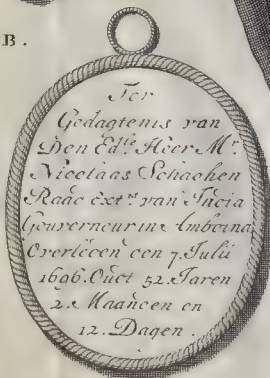 B.
Ter
Gedagtenis van
Den Ed:le Heer Mr.
Nicolaas Schaghen
Raad extr. van India
Gouverneur in Amboina
Overleden den 7. Julii
1696. Oudt 52. Jaren
2. Maanden en
12. Dagen.